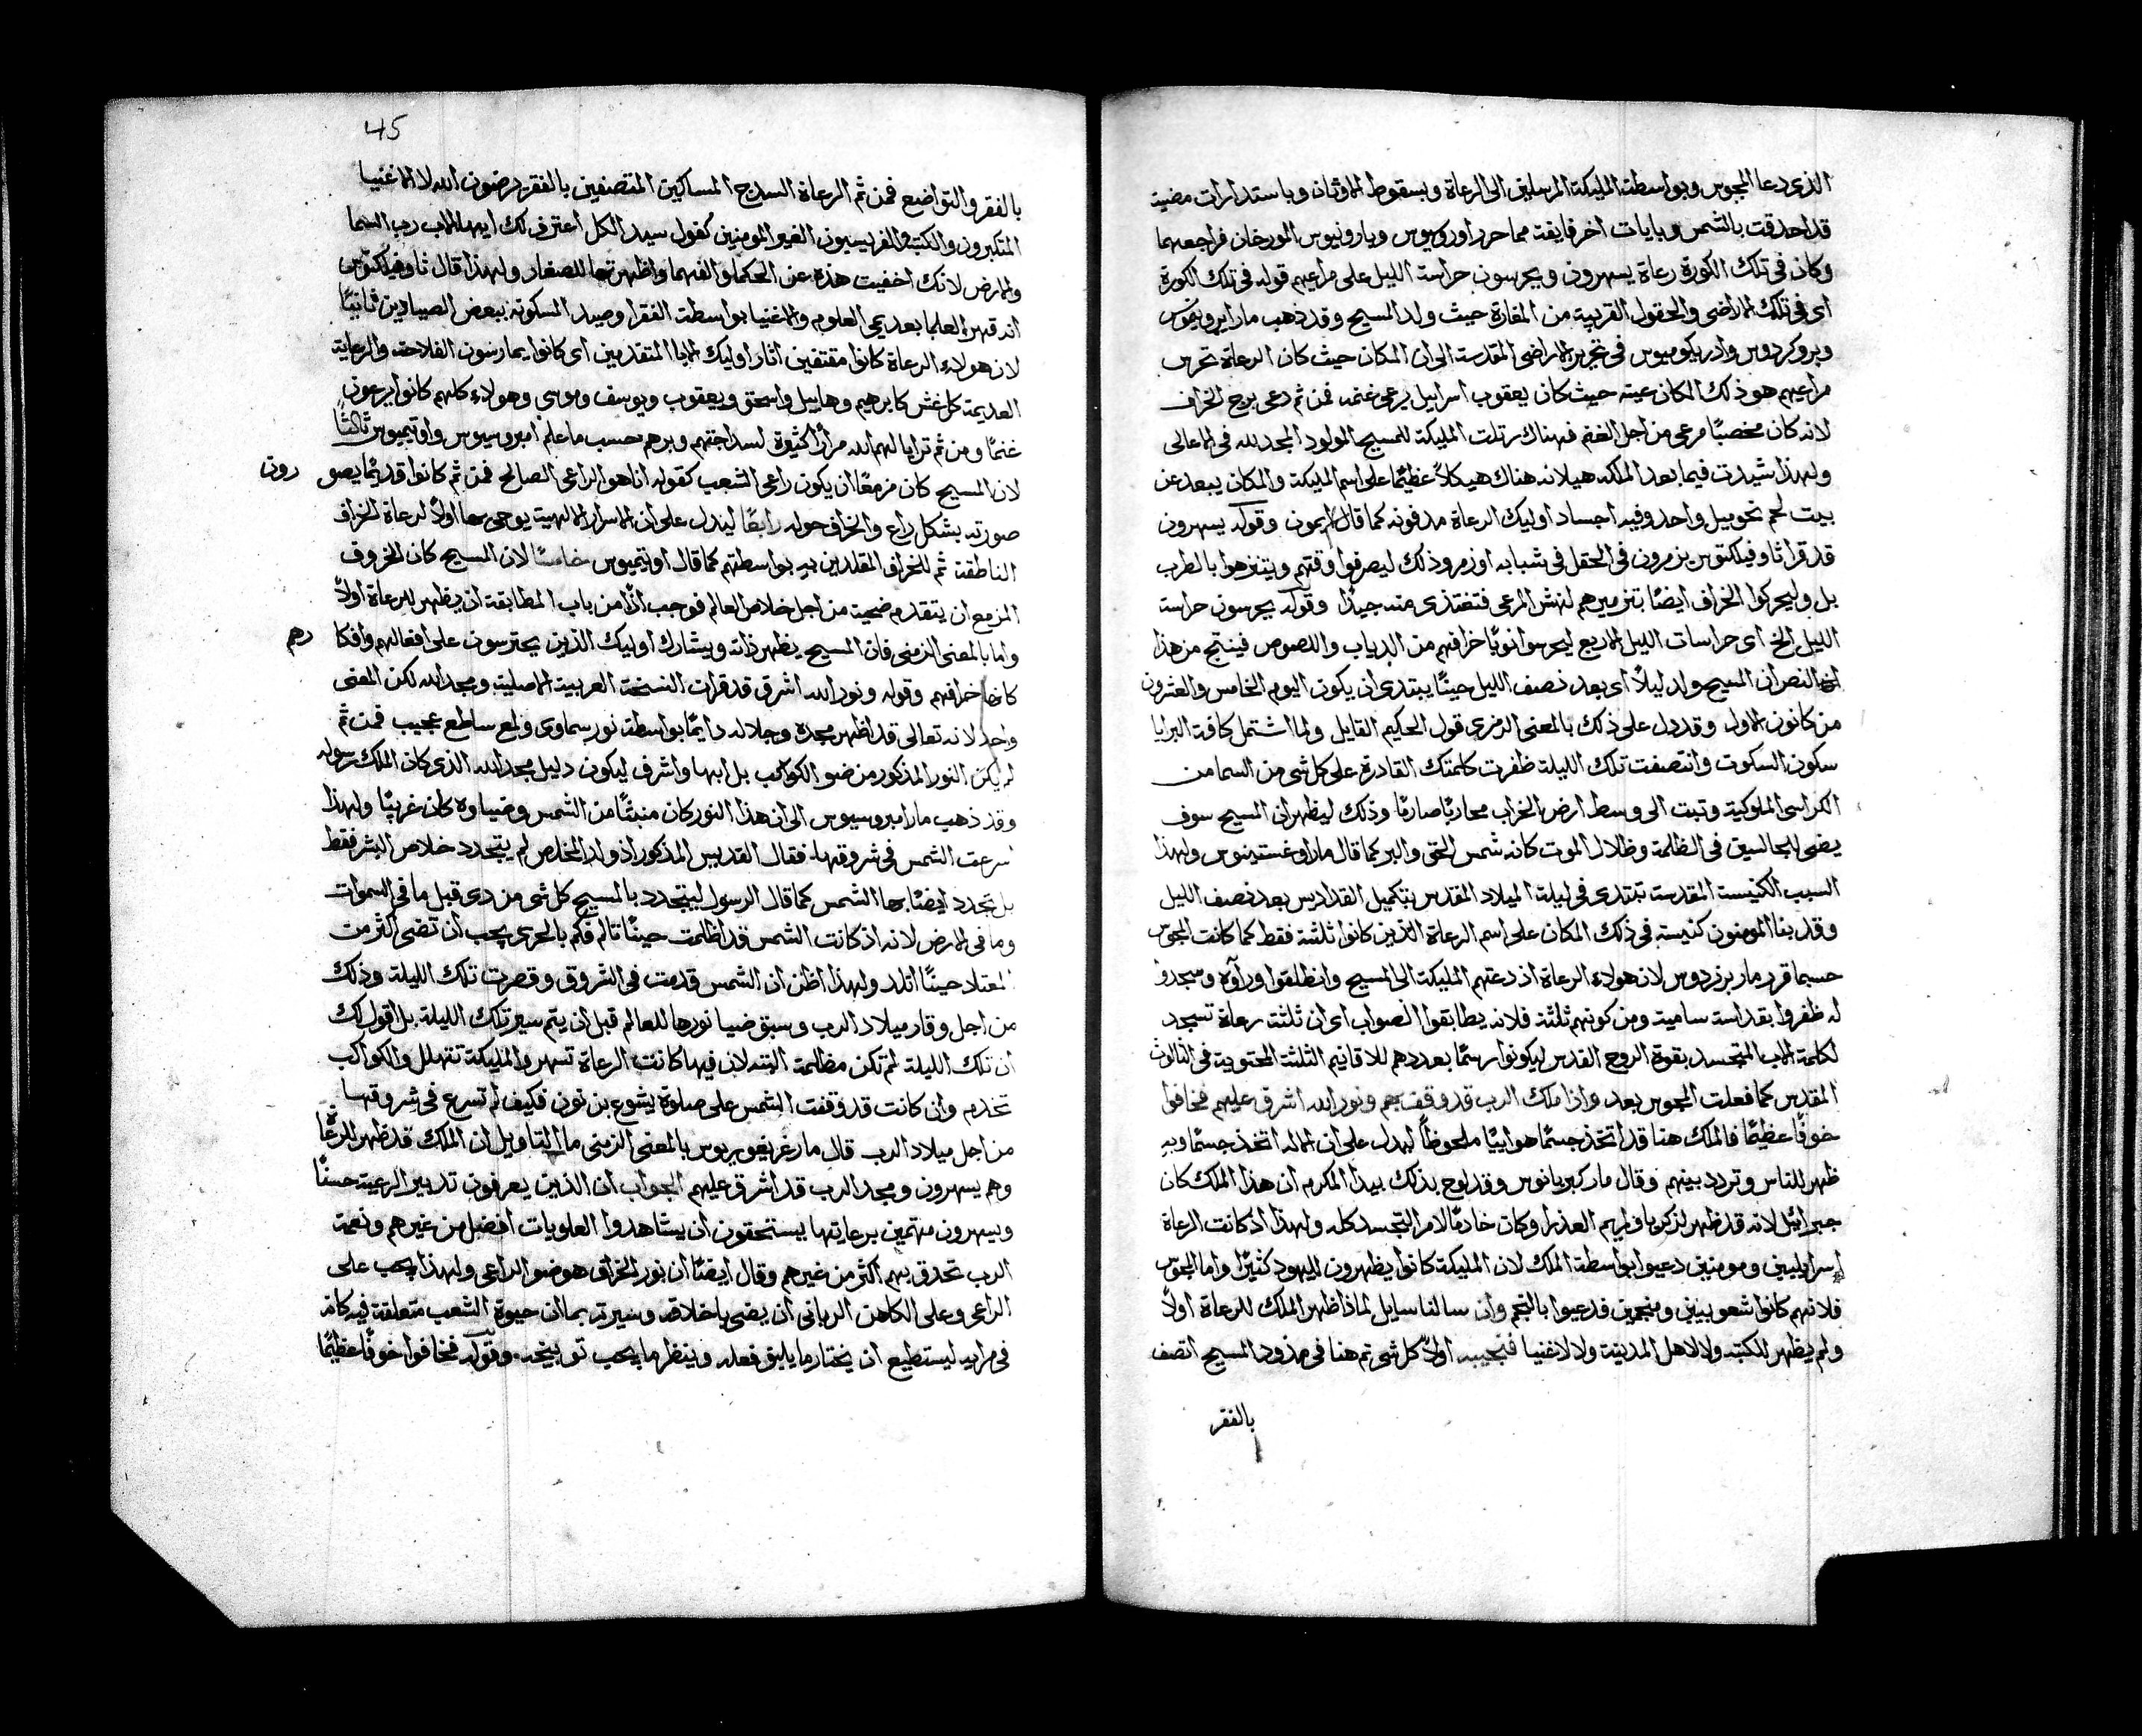 الذى دعا المجوس وبواسطة المليكة المرسلين الى الرعاة وبسقوط الاوثان وباستدارات مضية
قد احدقت بالشمس وبايات اخر فايقة مما حرر اوروسيوس وبارونيوس المورخان فراجعهما
وكان فى تلك الكورة رعاة يسهرون ويحرسون حراسة الليل على مراعيهم قوله فى تلك الكورة
اى فى تلك الاراضى والحقول القريبة من المغارة حيث ولد المسيح وقد ذهب مار ايرونيموس
وبروكردوس وادريكوميوس فى تحرير الاراضى المقدسة الى ان المكان حيث كان الرعاة تحرس
مراعيهم هو ذلك المكان عينه حيث كان يعقوب اسرايل يرعى غنمه فمن ثم دعى برج الخراف
لانه كان مخصبًا مرعى من اجل الغنم فهناك رتلت المليكة للمسيح المولود المجد لله فى الاعالى
ولهذا شيدت فيما بعد الملكه هيلانه هناك هيكلاً عظيمًا على اسم المليكة والمكان يبعد عن
بيت لحم نحو ميل واحد وفيه اجساد اوليك الرعاة مدفونه كما قال ايمون وقوله يسهرون
قد قرا ثاوفيلكتوس يزمرون فى الحقل فى شبابه او زمر وذلك ليصرفوا وقتهم ويتنزهوا بالطرب
بل وليحركوا الخراف ايضًا بتزميرهم لنهش المرعى فتغتذى منه جيدًا وقوله يحرسون حراسة
الليل الخ اى حراسات الليل الاربع ليحرسوا نوبًا خرافهم من الدياب واللصوص فينتج من هذا
النص ان المسيح ولد ليلاً اى بعد نصف الليل حينًا يبتدى ان يكون اليوم الخامس والعشرون
من كانون الاول وقد دل على ذلك بالمعنى الرمزى قول الحكيم القايل ولما اشتمل كافة البرايا
سكون السكوت وانتصفت تلك الليلة ظفرت كلمتك القادرة على كل شى من السما من
الكراسى الملوكية وتبت الى وسط ارض الخراب محاربًا صارمًا وذلك ليظهر ان المسيح سوف
يضى للجالسين فى الظلمة وظلال الموت كانه شمس الحق والبر كما قال مار اوغستينوس ولهذا
السبب الكنيسة المقدسة تبتدى فى ليلة الميلاد المقدس بتكميل القداديس بعد نصف الليل
وقد بنا المومنون كنيسة فى ذلك المكان على اسم الرعاة الذين كانوا ثلثة فقط كما كانت المجوس
حسبما قرر مار برنردوس لان هولاء الرعاة اذ دعتهم المليكة الى المسيح وانطلقوا وراوه وسجدوا
له ظفروا بقداسة سامية ومن كونهم ثلثة فلانه يطابقوا الصواب اى ان ثلثة رعاة تسجد
لكلمة الاب المتجسد بقوة الروح القدس ليكونوا رسمًا بعددهم للاقانيم الثلثة المحتوية فى الثالوث
المقدس كما فعلت المجوس بعد واذا ملك الرب قد وقف بهم ونور الله اشرق عليهم فخافوا
خوفًا عظيمًا فالملك هنا قد اتخذ جسمًا هواييًا ملحوظًا ليدل على ان الاله اتخذ جسمًا وبه
ظهر للناس وتردد بينهم وقال مار كبريانوس وقد لوح بذلك بيدا المكرم ان هذا الملك كان
جبراييل لانه قد ظهر لذكريا ولمريم العذرا وكان خادمًا لامر التجسد كله ولهذا اذ كانت الرعاة
اسراييليين ومومنين دعيوا بواسطة الملك لان المليكة كانوا يظهرون لليهود كثيرًا واما المجوس
فلانهم كانوا شعوبيين ومنجمين فدعيوا بالنجم وان سالنا سايل لماذا ظهر الملك للرعاة اولاً
ولم يظهر للكتبه ولا لاهل المدينة ولا للاغنيا فنجيبه اولاً كل شى تم هنا فى مذود المسيح اتصف
بالفقر
45
بالفقر والتواضع فمن ثم الرعاة السدج المساكين المتصفين بالفقر يرضون الله لا الاغنيا
المتكبرون والكتبة والفريسيون الغير المومنين كقول سيد الكل اعترف لك ايها الاب رب السما
والارض لانك اخفيت هذه عن الحكما والفهما واظهرتها للصغار ولهذا قال ثاوفيلكتوس
انه قهر العلما بعديمى العلوم والاغنيا بواسطة الفقرا وصيد المسكونه ببعض الصيادين ثانيًا
لان هولاء الرعاة كانوا مقتفين اثار اوليك الابا المتقدمين اى كانوا يمارسون الفلاحة والرعاية
العديمة كل غش كابرهيم وهابيل واسحق ويعقوب ويوسف وموسى وهولاء كلهم كانوا يرعون
غنمًا ومن ثم ترايا لهم الله مرارًا كثيرة لسداجتهم وبرهم حسب ما علم امبروسيوس واوتيميوس ثالثًا
لان المسيح كان مزمعًا ان يكون راعى الشعب كقوله انا هو الراعى الصالح فمن ثم كانوا قديمًا يصو رون
صورته بشكل راع والخراف حوله رابعًا ليدل على ان الاسرار الالهية يوحى بها اولاً لرعاة الخراف
الناطقة ثم للخراف المقلدين به بواسطتهم كما قال اوتيميوس خامسًا لان المسيح كان الخروف
المزمع ان يتقدم ضحية من اجل خلاص العالم فوجب اذًا من باب المطابقة ان يظهر للرعاة اولاً
واما بالمعنى الزمنى فان المسيح يظهر ذاته ويشارك اوليك الذين يحترسون على افعالهم وافكا رهم
كانها خرافهم وقوله ونور الله اشرق قد قرات النسخة العربية الاصلية ومجد الله لكن المعنى
واحد لانه تعالى قد اظهر مجده وجلاله دايمًا بواسطة نور سماوى ولمع ساطع عجيب فمن ثم
لم يكن النور المذكور من ضو الكواكب بل ابها واشرف ليكون دليل مجد الله الذى كان الملك رسوله
وقد ذهب مار امبروسيوس الى ان هذا النور كان منبثًا من الشمس وضياوه كان غريبًا ولهذا
سرعت الشمس فى شروقها فقال القديس المذكور اذ ولد المخلص لم يتجدد خلاص البشر فقط
بل تجدد ايضًا بها الشمس كما قال الرسول ليتجدد بالمسيح كل شى من ذى قبل ما فى السموات
وما فى الارض لانه اذ كانت الشمس قد اظلمت حينًا تالم فكم بالحرى يجب ان تضى اكثر من
المعتاد حينًا اتلد ولهذا اظن ان الشمس قدمت فى الشروق وقصرت تلك الليلة وذلك
من اجل وقار ميلاد الرب وسبق ضيا نورها للعالم قبل ان يتم سير تلك الليلة بل اقول لك
ان تلك الليلة لم تكن مظلمة البته لان فيها كانت الرعاة تسهر والمليكة تتهلل والكواكب
تخدم وان كانت قد وقفت الشمس على صلوة يشوع بن نون فكيف لم تسرع فى شروقها
من اجل ميلاد الرب قال مار غريغوريوس بالمعنى الزمنى ما التاويل ان الملك قد ظهر للرعاة
وهم يسهرون ومجد الرب قد اشرق عليهم الجواب ان الذين يعرفون تدبير الرعية حسنًا
ويسهرون مهتمين برعايتها يستحقون ان يشاهدوا العلويات افضل من غيرهم ونعمة
الرب تحدق بهم اكثر من غيرهم وقال ايضًا ان نور الخراف هو ضو الراعى ولهذا يجب على
الراعى وعلى الكاهن الربانى ان يضى باخلاقه وسيرته بما ان حيوة الشعب متعلقة فيه كانه
فى مراية ليستطيع ان يختار ما يليق فعله وينظر ما يجب توبيخه وقوله فخافوا خوفًا عظيمًا